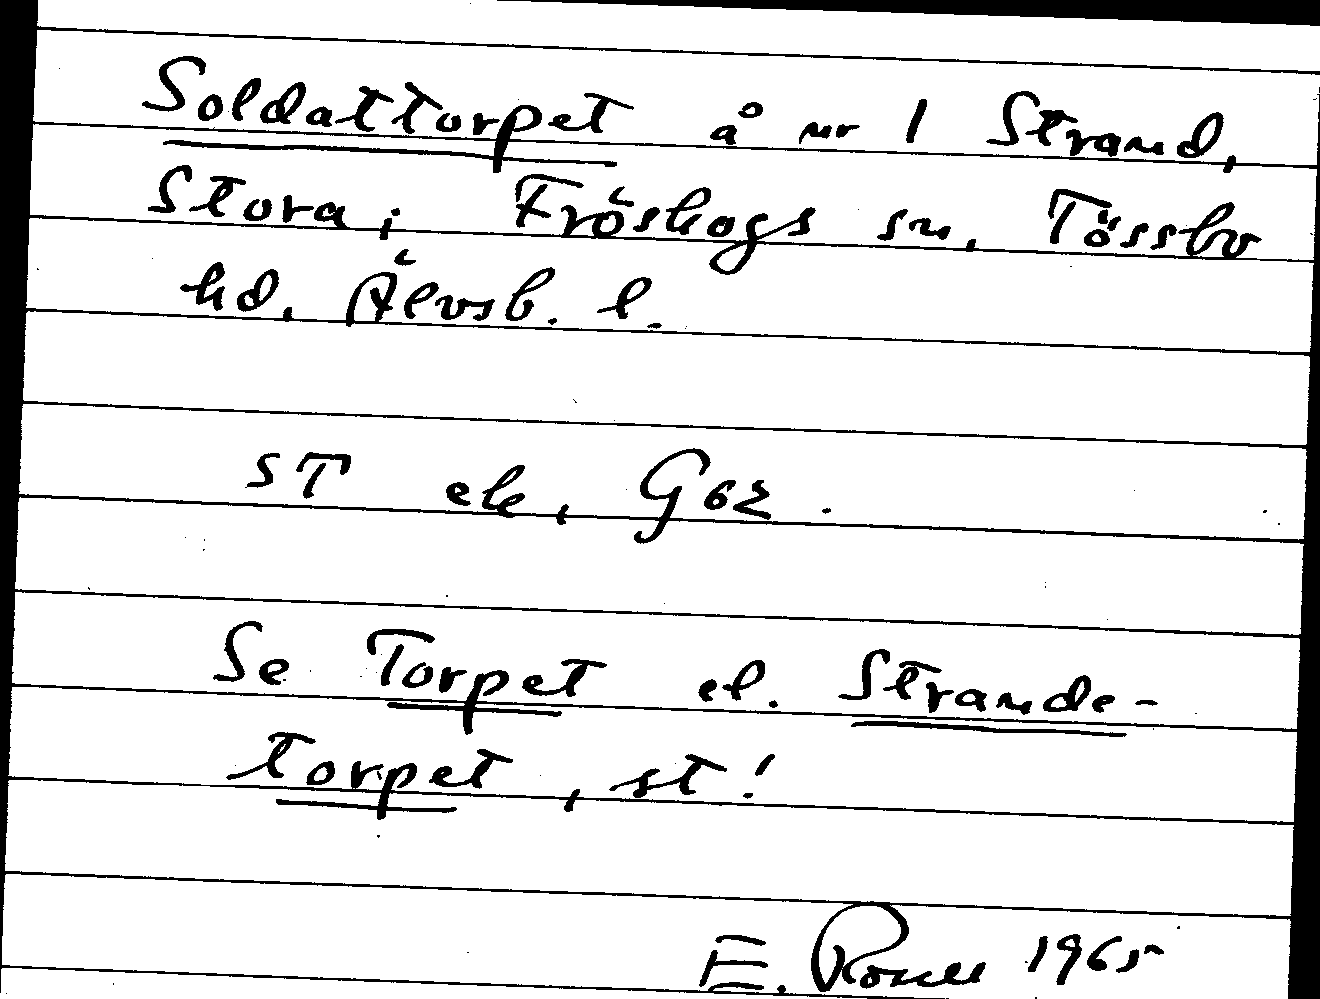 Soldattorpet å nr 1 Strand,
Stora, Fröskogs sn, Tössbo
hd, Älvsb. l.
ST ek, G62.
Se Torpet el. Strande-
torpet, st!
E. 1965